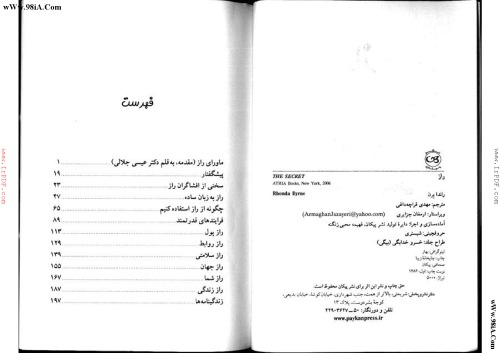 wWw.98iA.Com
راز
THE SECRET
ATRIA Books, New York, 2006
Rhonda Byrne
راندا برن
مترجم: مهدی قراچه‌داغی
ویراستار: ارمغان جزایری (ArmaghanJazayeri@yahoo.com)
آماده‌سازی و اجرا: دایرهٔ تولید نشر پیکان، فهیمه محبی زنگنه
حروفچینی: شبستری
طراح جلد: خسرو خدابگی (بیگی)
لیتوگرافی: بهار
نوبت چاپ: اول، ۱۳۸۶
حق چاپ و نشر این اثر برای نشر پیکان محفوظ است.
تلفن و دورنگار:
www.paykanpress.ir
فهرست
ماورای راز (مقدمه، به قلم دکتر عیسی جلالی) ۱
پیشگفتار ۱۹
سخنی از افشاگران راز ۲۳
راز به زبان ساده ۲۷
چگونه از راز استفاده کنیم ۶۵
فرایندهای قدرتمند ۸۹
راز پول ۱۱۳
راز روابط ۱۲۹
راز سلامتی ۱۳۹
راز جهان ۱۵۵
راز شما ۱۶۷
راز زندگی ۱۸۷
زندگینامه‌ها ۱۹۷
wWw.98iA.Com